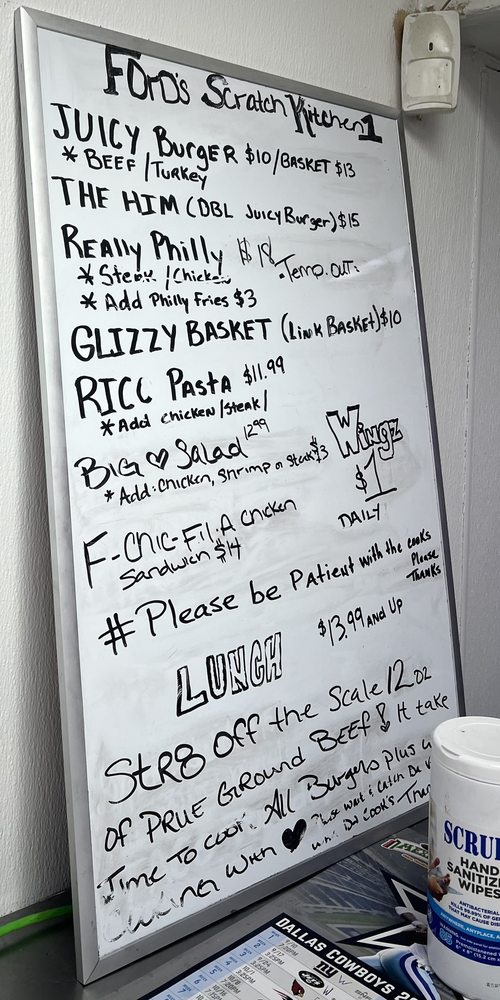 FOrD's Scratch Kitchen 1
JUICY Burger $10/BASKET $13
* BEEF / Turkey
THE HIM (DBL Juicy Burger) $15
REAlly Philly $18
* Steak / Chicken . Temp. out.
* Add Philly Fries $3
GLIZZY BASKET (Link BASKET) $10
RICC PASTA $11.99
* Add chicken / steak /
BIG ♥ Salad 12.99
* Add: Chicken, Shrimp or Steak $3
Wingz
$1
DAILY
F-CHIC-FIL.A Chicken
Sandwich $14
# Please be Patient with the cooks
Please
Thanks
LUNCH $13.99 and Up
Str8 Off the Scale 12 oz
of PRUE GROUND BEEF! It take
Time To cook. All Burgers Plus
With ♥
Cook's
SCRU
HAND
SANITIZ
WIPES
ANTIBACTERIAL
DALLAS COWBOYS 2